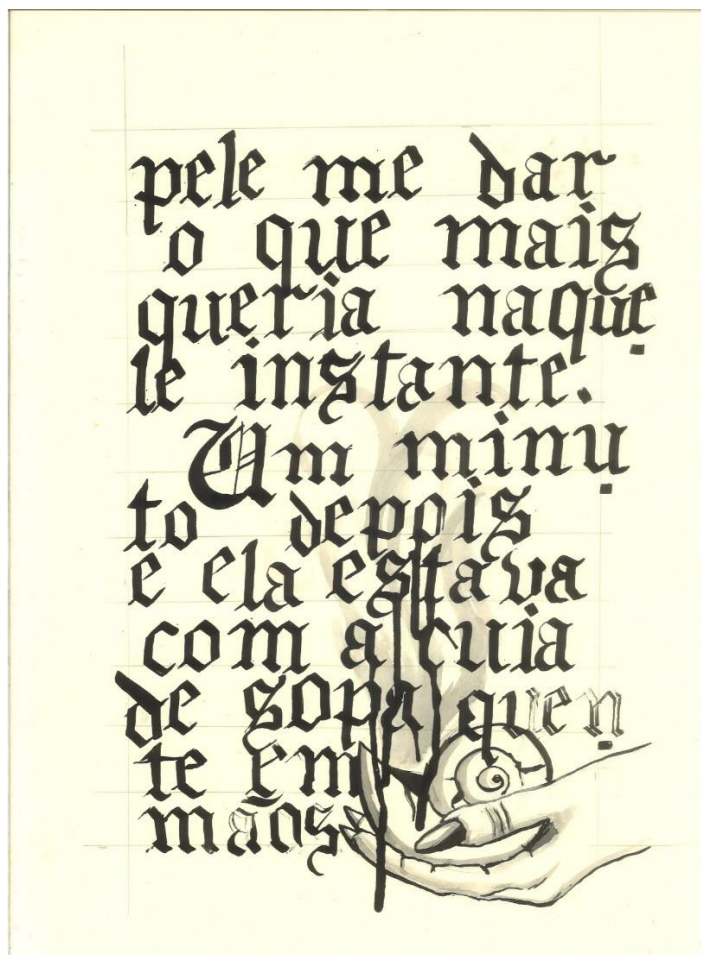 pele me dar
o que mais
queria naque
le instante.
Um minu
to depois
e ela estava
com a cuia
de sopa quen
te em
mãos